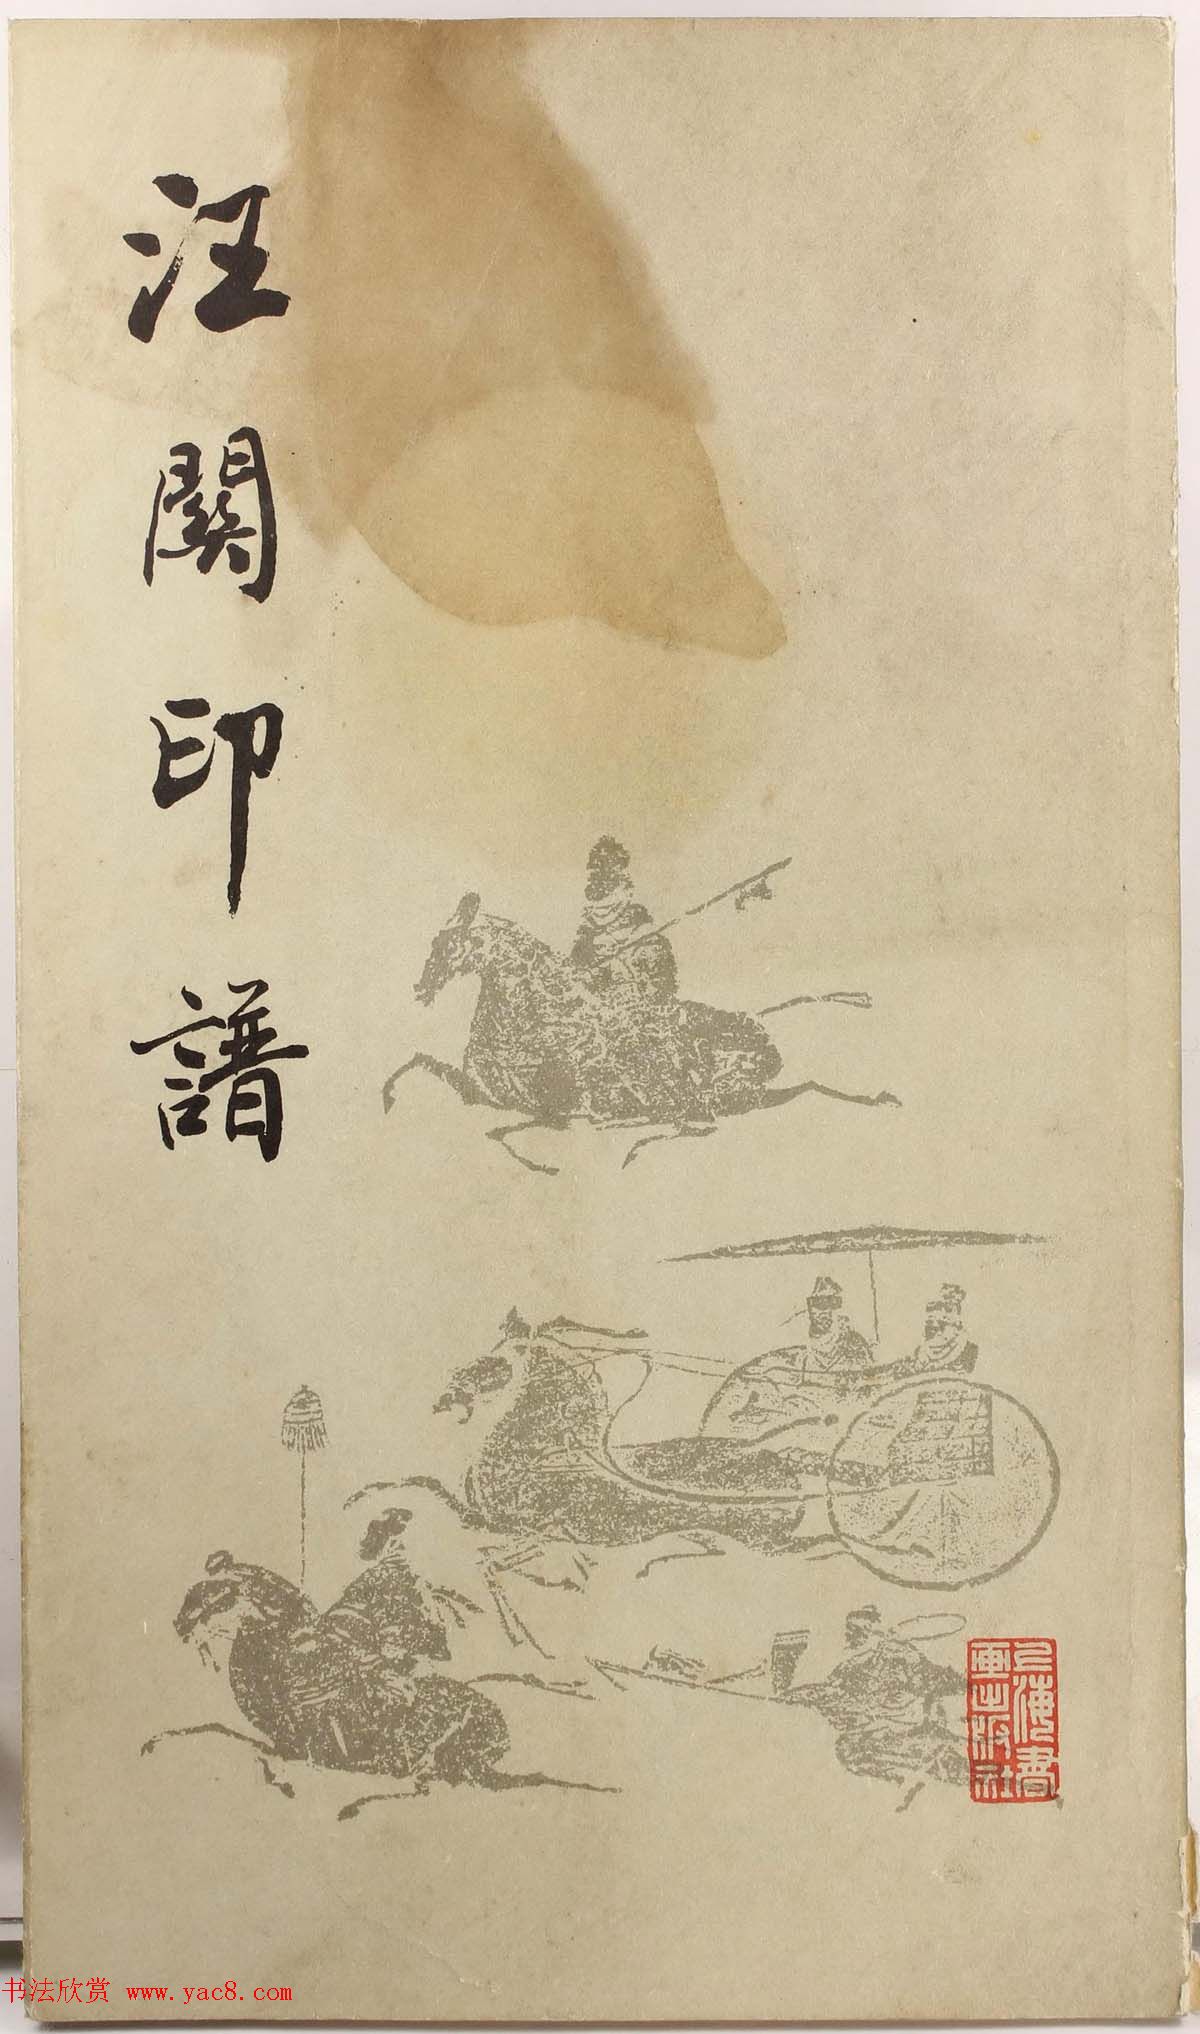 汪關印譜
上海書
画出版社
书法欣赏 www.yac8.com